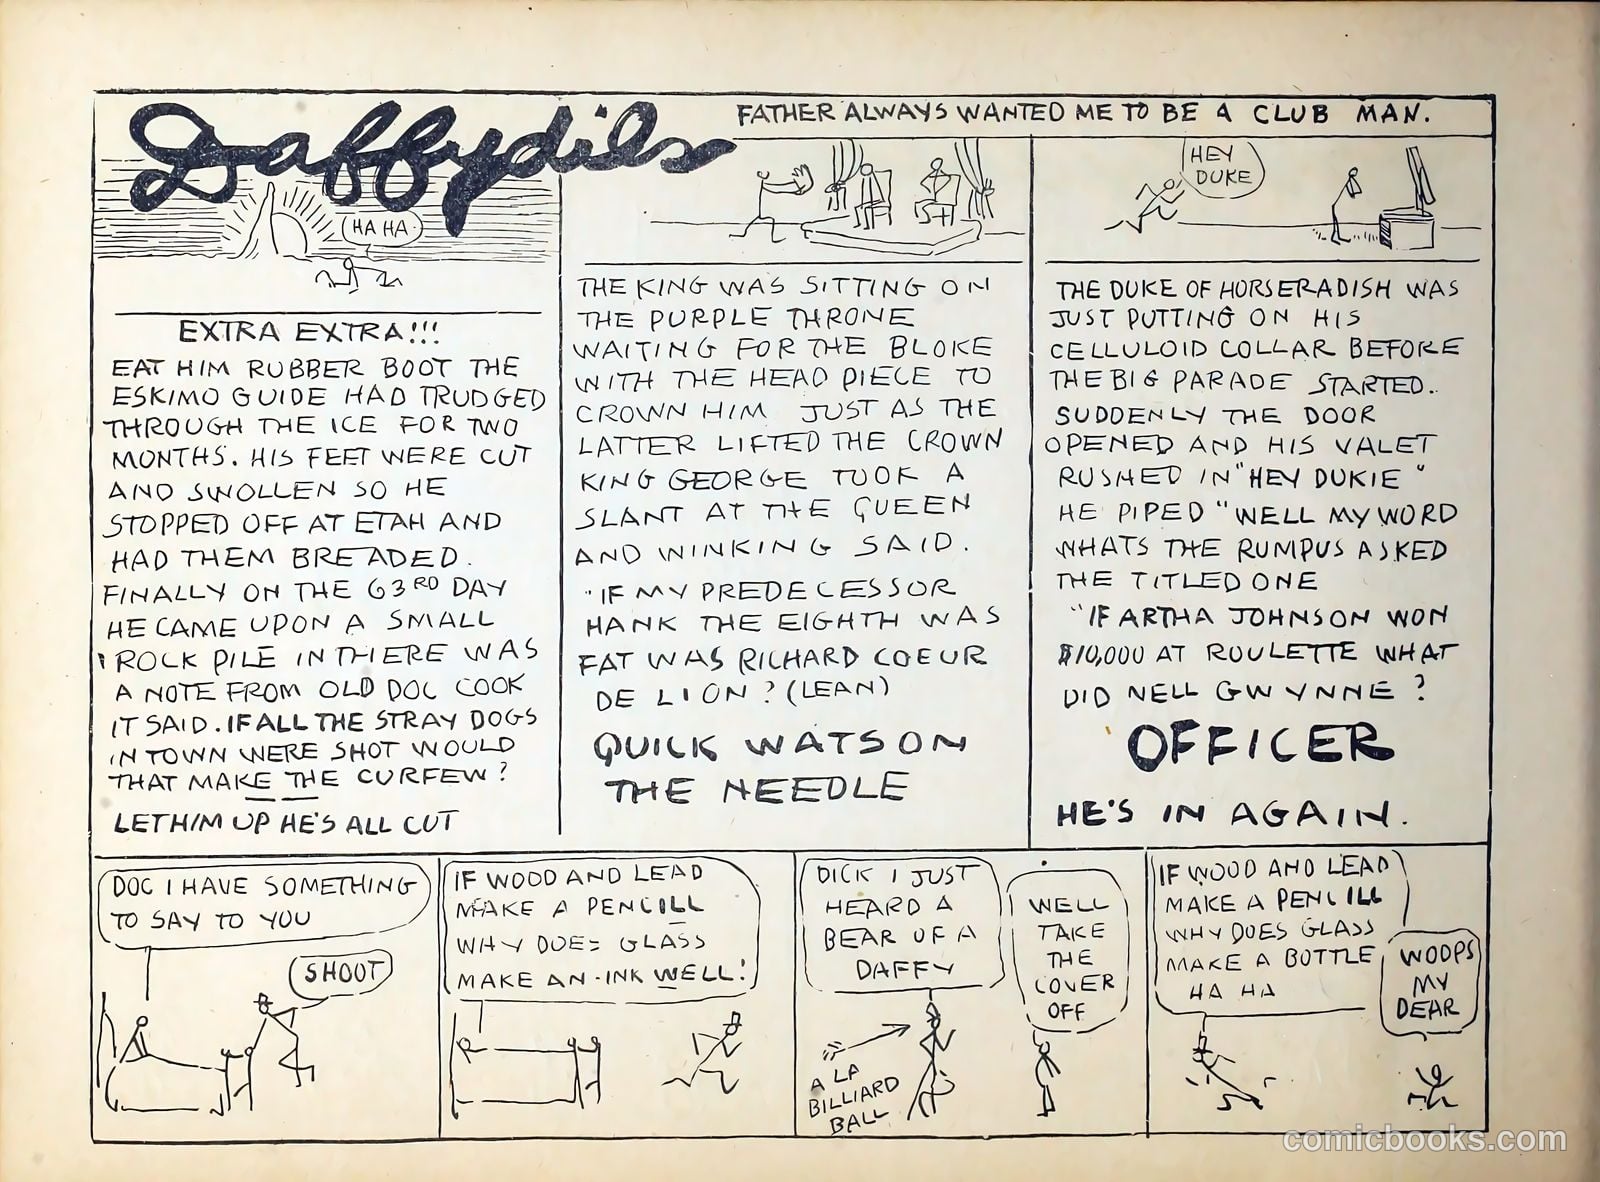 Daffydils
FATHER ALWAYS WANTED ME TO BE A CLUB MAN.
HA HA
EXTRA EXTRA!!!
EAT HIM RUBBER BOOT THE
ESKIMO GUIDE HAD TRUDGED
THROUGH THE ICE FOR TWO
MONTHS. HIS FEET WERE CUT
AND SWOLLEN SO HE
STOPPED OFF AT ETAH AND
HAD THEM BREADED.
FINALLY ON THE 63RD DAY
HE CAME UPON A SMALL
ROCK PILE IN THERE WAS
A NOTE FROM OLD DOC COOK
IT SAID. IF ALL THE STRAY DOGS
IN TOWN WERE SHOT WOULD
THAT MAKE THE CURFEW?
LET HIM UP HE'S ALL CUT
THE KING WAS SITTING ON
THE PURPLE THRONE
WAITING FOR THE BLOKE
WITH THE HEAD PIECE TO
CROWN HIM JUST AS THE
LATTER LIFTED THE CROWN
KING GEORGE TOOK A
SLANT AT THE QUEEN
AND WINKING SAID.
"IF MY PREDECESSOR
HANK THE EIGHTH WAS
FAT WAS RICHARD COEUR
DE LION? (LEAN)
QUICK WATSON
THE NEEDLE
HEY
DUKE
THE DUKE OF HORSERADISH WAS
JUST PUTTING ON HIS
CELLULOID COLLAR BEFORE
THE BIG PARADE STARTED.
SUDDENLY THE DOOR
OPENED AND HIS VALET
RUSHED IN "HEY DUKIE"
HE PIPED "WELL MY WORD
WHATS THE RUMPUS ASKED
THE TITLED ONE
"IF ARTHA JOHNSON WON
$10,000 AT ROULETTE WHAT
DID NELL GWYNNE?
OFFICER
HE'S IN AGAIN.
DOC I HAVE SOMETHING
TO SAY TO YOU
SHOOT
IF WOOD AND LEAD
MAKE A PENCILL
WHY DOES GLASS
MAKE AN-INK WELL!
DICK I JUST
HEARD A
BEAR OF A
DAFFY
WELL
TAKE
THE
COVER
OFF
A LA
BILLIARD
BALL
IF WOOD AND LEAD
MAKE A PENCILL
WHY DOES GLASS
MAKE A BOTTLE
HA HA
WOOPS
MY
DEAR
comicbooks.com